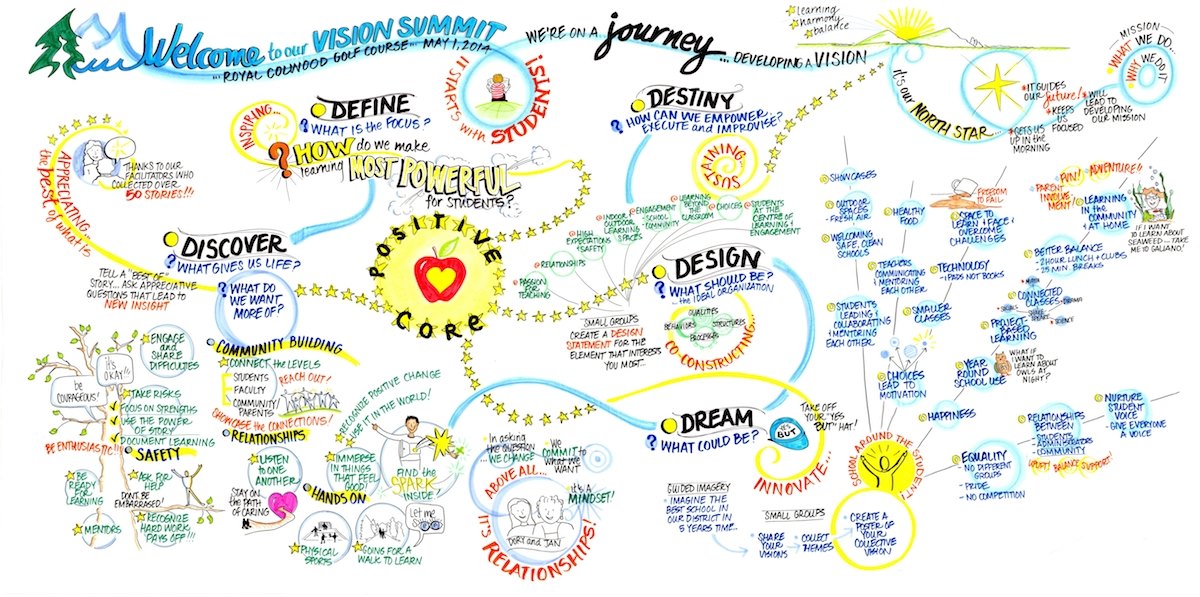 Welcome to our VISION SUMMIT
...ROYAL COLWOOD GOLF COURSE... MAY 1, 2014
IT STARTS with STUDENTS!
WE'RE ON A journey
... DEVELOPING A VISION
learning
harmony
balance
it's our NORTH STAR...
IT GUIDES
OUR future!
KEEPS
US
FOCUSED
GETS US
UP IN THE
MORNING
WILL
LEAD TO
DEVELOPING
OUR MISSION
MISSION
WHAT WE DO...
WHY WE DO IT
INSPIRING...
DEFINE
? WHAT IS the FOCUS?
? HOW do we make
learning MOST POWERFUL
for STUDENTS?
POSITIVE
CORE
APPRECIATING
the best of what is
THANKS TO OUR
FACILITATORS WHO
COLLECTED OVER
50 STORIES!!!
DISCOVER
? WHAT GIVES US LIFE?
TELL A "BEST OF"
STORY... ASK APPRECIATIVE
QUESTIONS THAT LEAD TO
NEW INSIGHT
? WHAT DO
WE WANT
MORE OF?
DESTINY
? HOW CAN WE EMPOWER,
EXECUTE and IMPROVISE?
SUSTAINING
@ INDOOR
OUTDOOR
LEARNING
SPACES
@ ENGAGEMENT
SCHOOL
COMMUNITY
@ LEARNING
BEYOND
THE
CLASSROOM
@ CHOICES
@ STUDENTS
AT THE
CENTRE OF
LEARNING +
ENGAGEMENT
@ HIGH
EXPECTATIONS
+ SAFETY
@ RELATIONSHIPS
@ PASSION
FOR
TEACHING
DESIGN
? WHAT SHOULD BE?
... the IDEAL ORGANIZATION
SMALL GROUPS
CREATE A DESIGN
STATEMENT FOR THE
ELEMENT THAT INTERESTS
YOU MOST...
QUALITIES
BEHAVIORS
STRUCTURES
PROCESSES
CO-CONSTRUCTING...
DREAM
? WHAT COULD BE?
YES
BUT
TAKE OFF
YOUR "YES
BUT" HAT!
INNOVATE...
GUIDED IMAGERY
IMAGINE THE
BEST SCHOOL IN
OUR DISTRICT IN
5 YEARS TIME...
SMALL GROUPS
SHARE
YOUR
VISIONS
COLLECT
THEMES
CREATE A
POSTER OF
YOUR
COLLECTIVE
VISION
SCHOOL AROUND THE STUDENT!
ENGAGE
and
SHARE
DIFFICULTIES
it's
OKAY!!
be
COURAGEOUS!
TAKE RISKS
FOCUS ON STRENGTHS
USE THE POWER
OF STORY
DOCUMENT LEARNING
BE ENTHUSIASTIC!!!
SAFETY
BE
READY
FOR
LEARNING
ASK FOR
DON'T BE
EMBARRASSED!
MENTORS
RECOGNIZE
HARD WORK
PAYS OFF!!!
COMMUNITY BUILDING
CONNECT the LEVELS
STUDENTS
FACULTY
COMMUNITY
PARENTS
REACH OUT!
SHOWCASE the CONNECTIONS!
RELATIONSHIPS
LISTEN
TO ONE
ANOTHER
STAY ON
the PATH
OF CARING
HANDS ON
PHYSICAL
SPORTS
GOING FOR A
WALK TO LEARN
Let me
RECOGNIZE POSITIVE CHANGE
USE IT IN THE WORLD!
IMMERSE
IN THINGS
THAT FEEL
GOOD!
FIND the
SPARK
INSIDE!
In asking
the QUESTION
WE CHANGE
We
COMMIT to
what WE
WANT
It's A
MINDSET!
ABOVE ALL...
IT'S RELATIONSHIPS!
DORY and JAN
SHOWCASES
OUTDOOR
SPACES
- FRESH AIR
WELCOMING
SAFE, CLEAN
SCHOOLS
HEALTHY
FOOD
TEACHERS
COMMUNICATING
+ MENTORING
EACH OTHER
STUDENTS
LEADING +
COLLABORATING
+ MENTORING
EACH OTHER
FREEDOM
TO FAIL
SPACE TO
LEARN + FACE +
OVERCOME
CHALLENGES
TECHNOLOGY
- IPADS NOT BOOKS
SMALLER
CLASSES
CHOICES
LEAD TO
MOTIVATION
HAPPINESS
FUN! ADVENTURE!!
PARENT
INVOLVE
MENT!
LEARNING
IN the
COMMUNITY
+ AT HOME
IF I WANT
TO LEARN ABOUT
SEAWEED—TAKE
ME TO GALIANO!
BETTER BALANCE
- 2 HOUR LUNCH + CLUBS
- 25 MIN. BREAKS
CONNECTED
CLASSES
MATH
DRAMA
SCIENCE
PROJECT
BASED
LEARNING
YEAR
ROUND
SCHOOL USE
WHAT IF
I WANT TO
LEARN ABOUT
OWLS AT
NIGHT?
RELATIONSHIPS
BETWEEN
- STUDENTS
- ADMINISTRATORS
- COMMUNITY
UPLIFT! BALANCE SUPPORT!
NURTURE
STUDENT
VOICE
- GIVE EVERYONE
A VOICE
EQUALITY
- NO DIFFERENT
GROUPS
- PRIDE
- NO COMPETITION